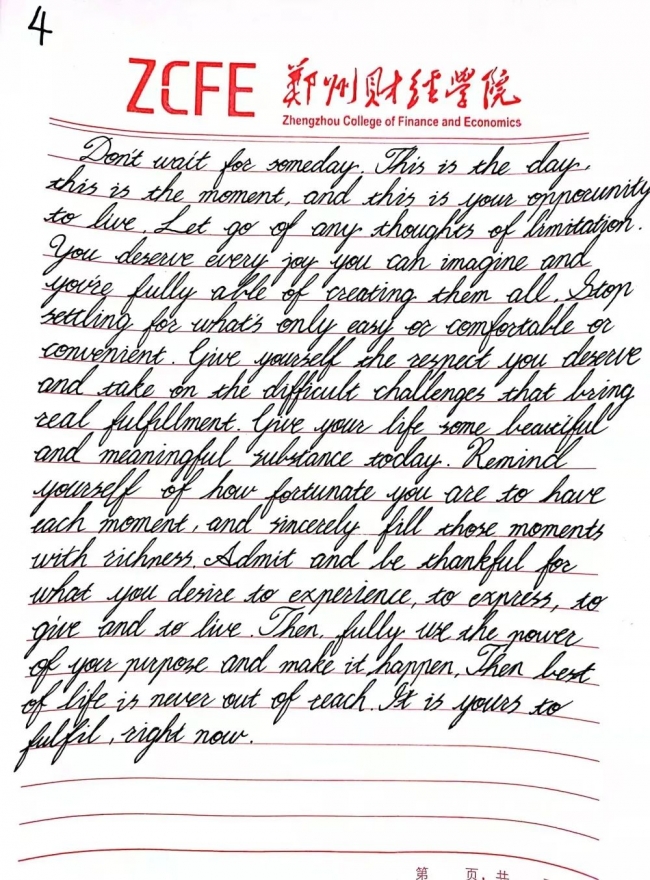 4
ZCFE 郑州财经学院
Zhengzhou College of Finance and Economics
Don't wait for someday. This is the day,
this is the moment, and this is your opporunity
to live. Let go of any thoughts of limitation.
You deserve every joy you can imagine and
you're fully able of creating them all. Stop
settling for what's only easy or comfortable or
convenient. Give yourself the respect you deserve
and take on the difficult challenges that bring
real fulfillment. Give your life some beautiful
and meaningful substance today. Remind
yourself of how fortunate you are to have
each moment, and sincerely fill those moments
with richness. Admit and be thankful for
what you desire to experience, to express, to
give and to live. Then, fully use the power
of your purpose and make it happen. Then best
of life is never out of reach. It is yours to
fulfil, right now.
第 页, 共